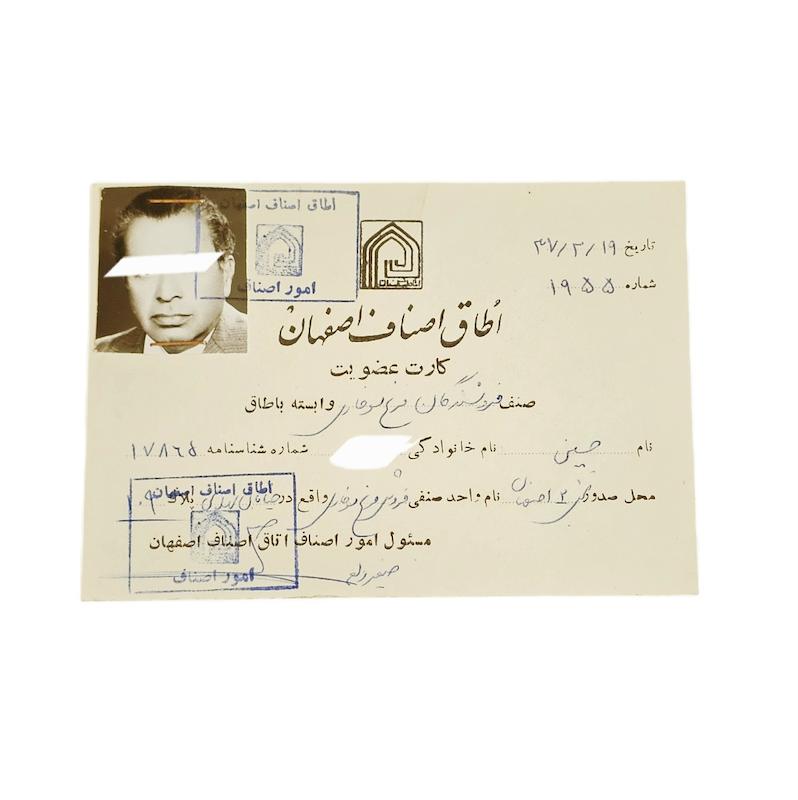 اطاق اصناف اصفهان
امور اصناف
تاریخ ۳۷/۲/۱۹
شماره ۱۹۵۵
اطاق اصناف اصفهان
کارت عضویت
صنف فروشندگان مرغ سوخاری وابسته باطاق
نام حسینی نام خانوادگی شماره شناسنامه ۱۷۸۶۵
محل صدور ۲ اصفهان نام واحد صنفی فروش مرغ سوخاری واقع در خیابان پلاک
مسئول امور اصناف اتاق اصناف اصفهان
اطاق اصناف اصفهان
امور اصناف